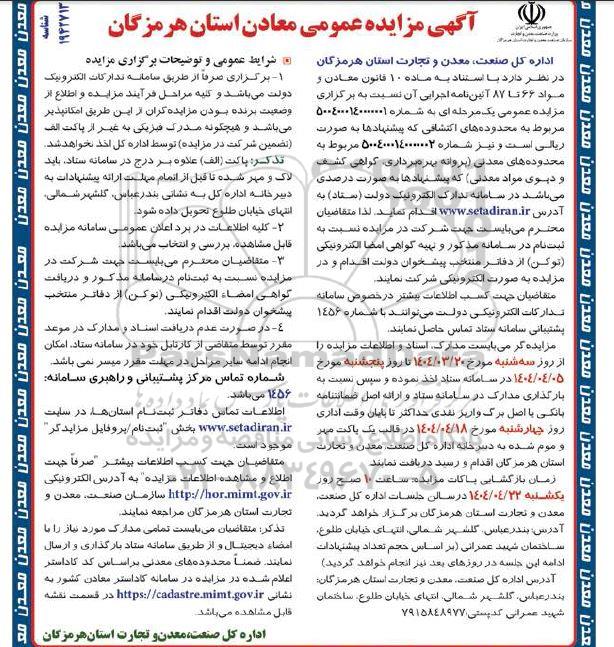 آگهی مزایده عمومی معادن استان هرمزگان
جمهوری اسلامی ایران
وزارت صنعت، معدن و تجارت
سازمان صنعت، معدن و تجارت استان هرمزگان
شناسه
۱۹۴۲۷۱۳
اداره کل صنعت، معدن و تجارت استان هرمزگان
در نظر دارد با استناد به ماده ۱۰ قانون معادن و
مواد ۶۶ تا ۸۷ آئین‌نامه اجرایی آن نسبت به برگزاری
مزایده عمومی یک‌مرحله ای به شماره ۵۰۰۴۰۰۰۱۴۰۰۰۰۰۱
مربوط به محدوده‌های اکتشافی که پیشنهادها به صورت
ریالی است و نیز شماره ۵۰۰۴۰۰۰۱۴۰۰۰۰۰۲ مربوط به
محدوده‌های معدنی (پروانه بهره‌برداری، گواهی کشف
و دپوی مواد معدنی) که پیشنهادها به صورت درصدی
می‌باشد در سامانه تدارک الکترونیک دولت (ستاد) به
آدرس www.setadiran.ir اقدام نماید. لذا متقاضیان
محترم می‌بایست جهت شرکت در مزایده نسبت به
ثبت‌نام در سامانه مذکور و تهیه گواهی امضا الکترونیکی
(توکن) از دفاتر منتخب پیشخوان دولت اقدام و در
مزایده به صورت الکترونیکی شرکت نمایند.
متقاضیان جهت کسب اطلاعات بیشتر درخصوص سامانه
تدارکات الکترونیکی دولت می‌توانند با شماره ۱۴۵۶
پشتیبانی سامانه ستاد تماس حاصل نمایند.
مزایده‌گر می‌بایست مدارک، اسناد و اطلاعات مزایده را
از روز سه‌شنبه مورخ ۱۴۰۴/۰۳/۲۰ تا روز پنجشنبه مورخ
۱۴۰۴/۰۴/۰۵ در سامانه ستاد اخذ نموده و سپس نسبت به
بارگذاری مدارک در سامانه ستاد و ارائه اصل ضمانتنامه
بانکی یا اصل برگ واریز نقدی حداکثر تا پایان وقت اداری
روز چهارشنبه مورخ ۱۴۰۴/۰۴/۱۸ در قالب یک پاکت مهر
و موم شده به دبیرخانه اداره کل صنعت، معدن و تجارت
استان هرمزگان اقدام و رسید دریافت نمایند.
زمان بازگشایی پاکات مزایده: ساعت ۱۰ صبح روز
یکشنبه ۱۴۰۴/۰۴/۲۲ در سالن جلسات اداره کل صنعت،
معدن و تجارت استان هرمزگان برگزار خواهد گردید.
آدرس: بندرعباس، گلشهر شمالی، انتهای خیابان طلوع،
ساختمان شهید عمرانی (بر اساس حجم تعداد پیشنهادات
ادامه این جلسه در روزهای بعد نیز انجام خواهد گردید.)
آدرس اداره کل صنعت، معدن و تجارت استان هرمزگان:
بندرعباس، گلشهر شمالی، انتهای خیابان طلوع، ساختمان
شهید عمرانی کدپستی: ۷۹۱۵۸۴۸۹۷۷
شرایط عمومی و توضیحات برگزاری مزایده
۱- برگزاری صرفاً از طریق سامانه تدارکات الکترونیک
دولت می‌باشد و کلیه مراحل فرآیند مزایده و اطلاع از
وضعیت برنده بودن مزایده‌گران از این طریق امکانپذیر
می‌باشد و هیچگونه مدرک فیزیکی به غیر از پاکت الف
(تضمین شرکت در مزایده) توسط اداره کل اخذ نخواهد شد.
تذکر: پاکت (الف) علاوه بر درج در سامانه ستاد، باید
لاک و مهر شده تا قبل از اتمام مهلت ارائه پیشنهادات به
دبیرخانه اداره کل به نشانی بندرعباس، گلشهر شمالی،
انتهای خیابان طلوع تحویل داده شود.
۲- کلیه اطلاعات در برد اعلان عمومی سامانه مزایده
قابل مشاهده، بررسی و انتخاب می‌باشد.
۳- متقاضیان محترم می‌بایست جهت شرکت در
مزایده نسبت به ثبت‌نام درسامانه مذکور و دریافت
گواهی امضاء الکترونیکی (توکن) از دفاتر منتخب
پیشخوان دولت اقدام نمایند.
۴- در صورت عدم دریافت اسناد و مدارک در موعد
مقرر توسط متقاضی از کارتابل خود در سامانه ستاد، امکان
انجام ادامه سایر مراحل در مهلت مقرر میسر نمی باشد.
شماره تماس مرکز پشتیبانی و راهبری سامانه:
۱۴۵۶ می‌باشد.
اطلاعات تماس دفاتر ثبت‌نام استان‌ها، در سایت
www.setadiran.ir بخش "ثبت‌نام/پروفایل مزایده‌گر"
موجود است.
متقاضیان جهت کسب اطلاعات بیشتر "صرفاً جهت
اطلاع و مشاهده اطلاعات مزایده" به آدرس الکترونیکی
http://hor.mimt.gov.ir سازمان صنعت، معدن و
تجارت استان هرمزگان مراجعه نمایند.
تذکر: متقاضیان می‌بایست تمامی مدارک مورد نیاز را با
امضاء دیجیتال و از طریق سامانه ستاد بارگذاری و ارسال
نمایند. ضمناً محدوده‌های معدنی براساس کد کاداستر
اعلام شده در مزایده در سامانه کاداستر معادن کشور به
نشانی https://cadastre.mimt.gov.ir در قسمت نقشه
قابل مشاهده می‌باشد.
اداره کل صنعت، معدن و تجارت استان هرمزگان